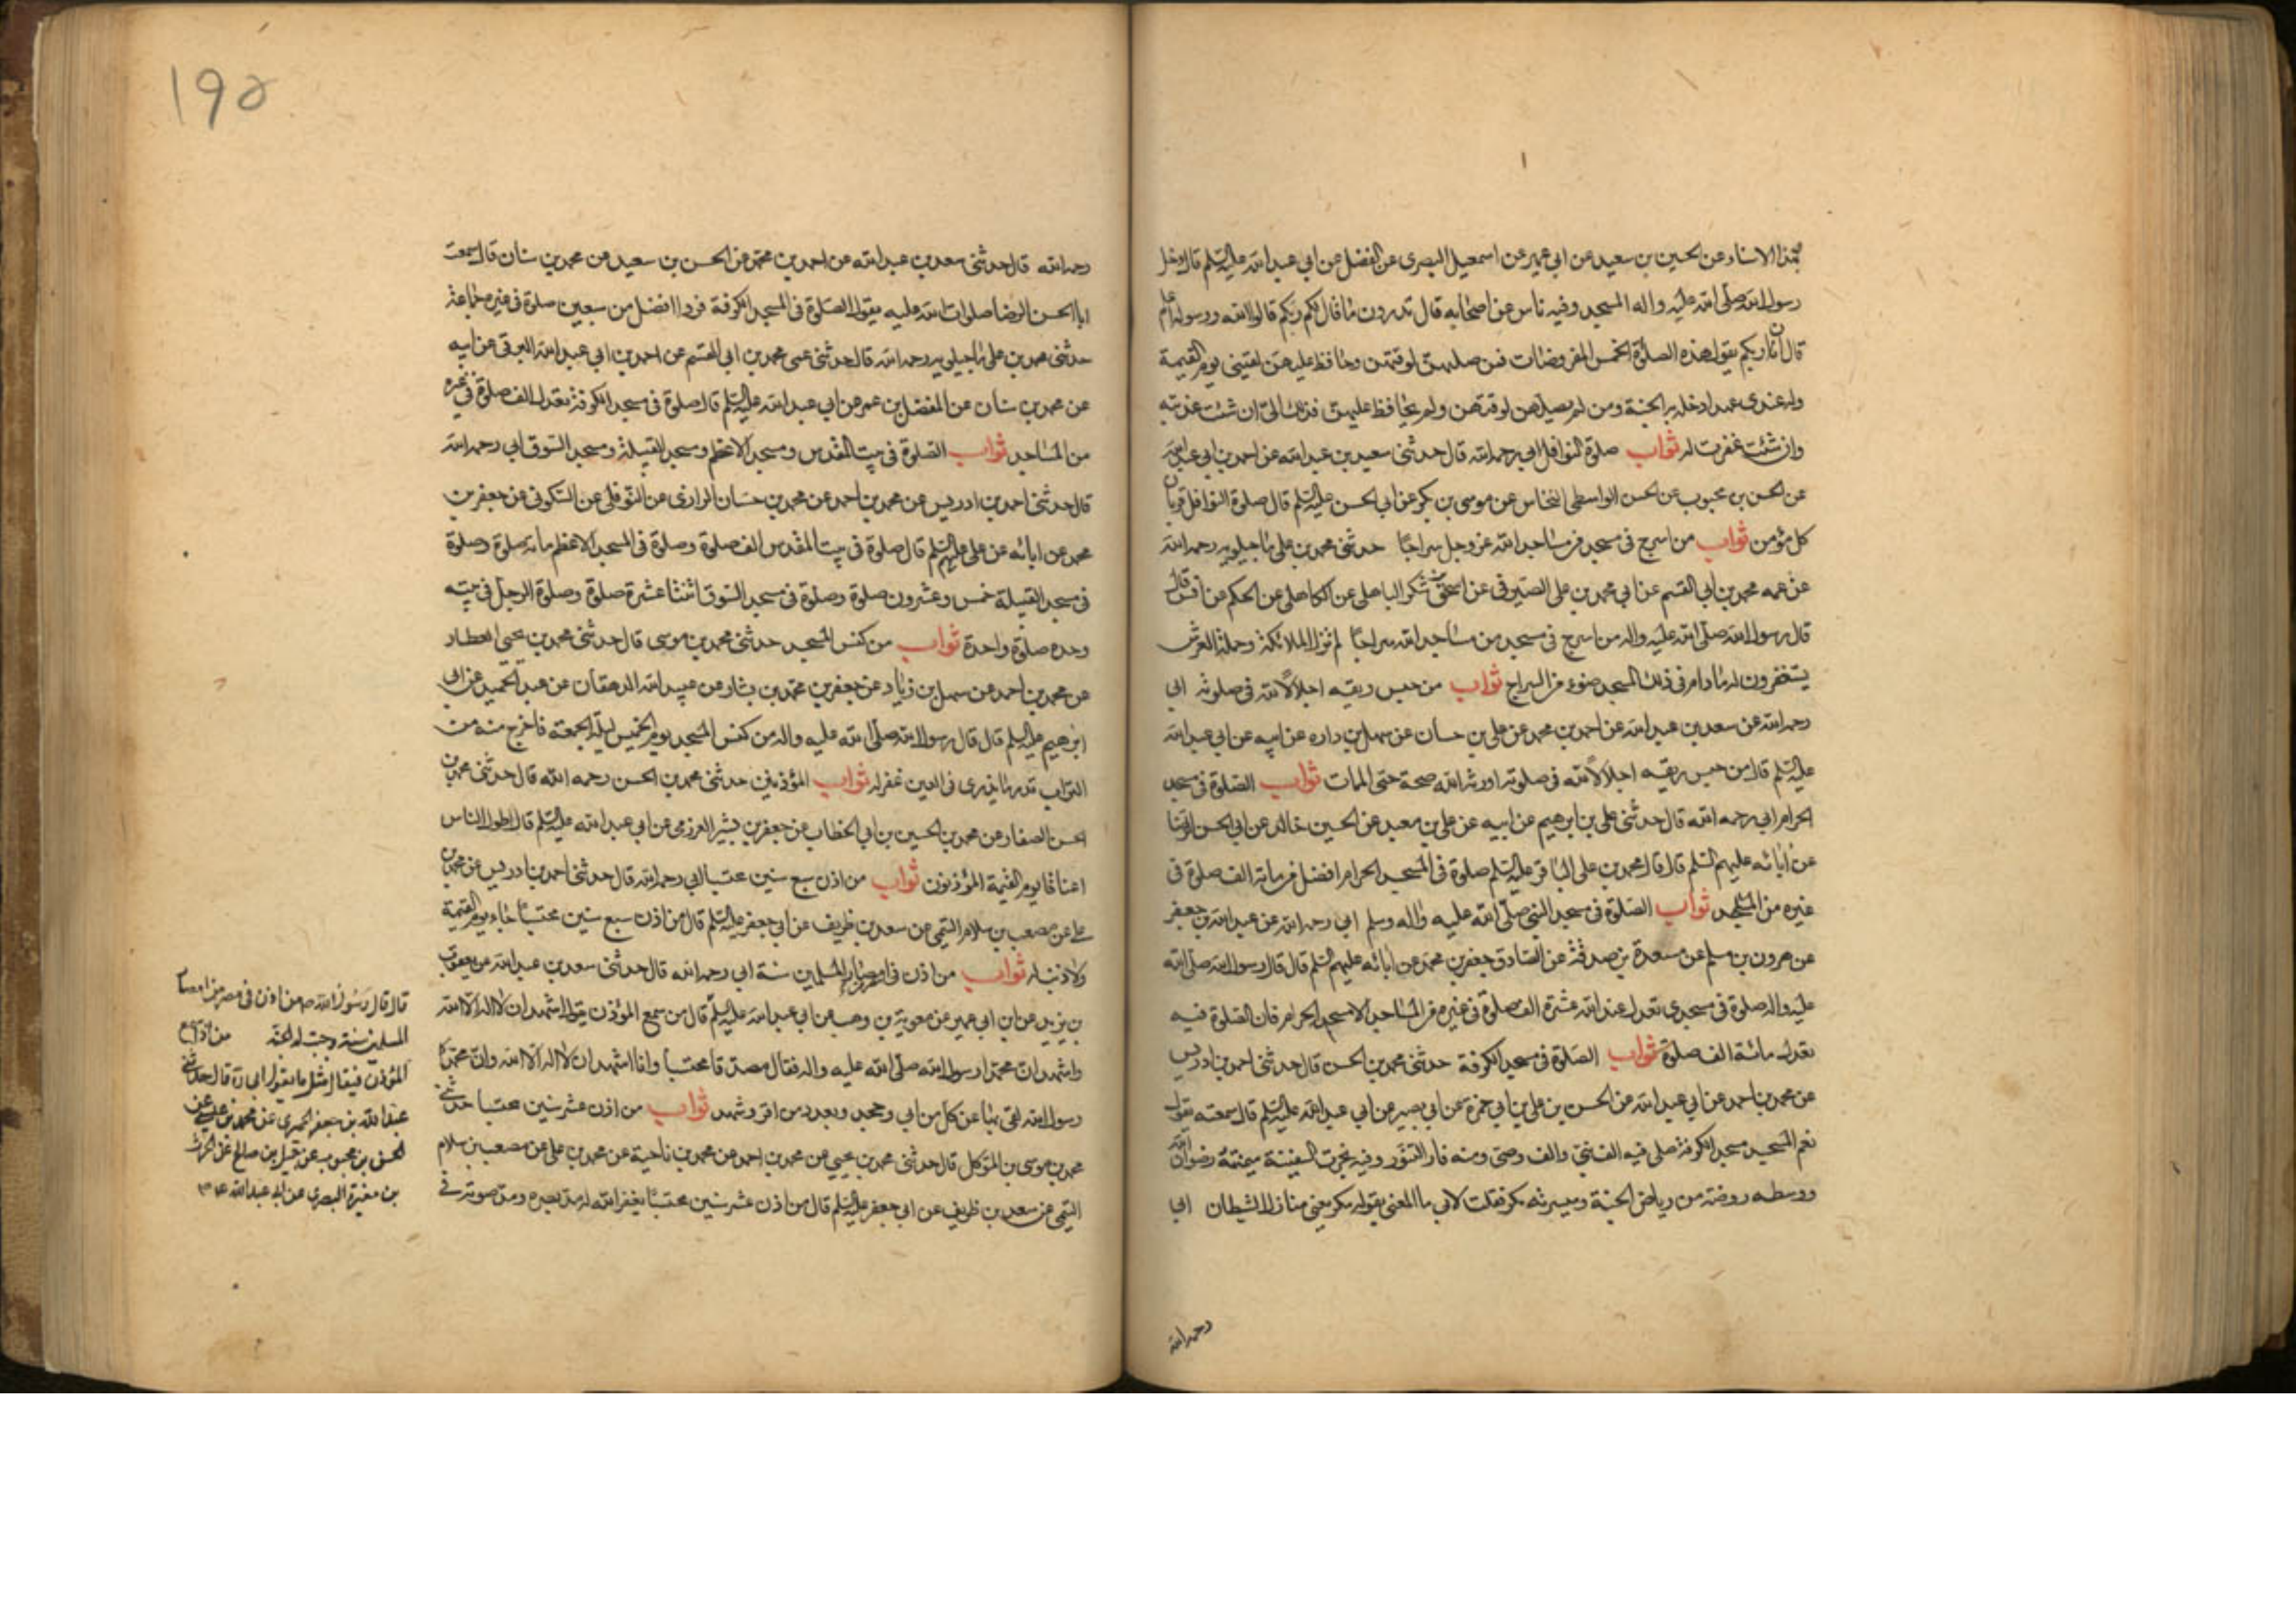 بهذا الاسناد عن الحسين بن سعيد عن ابن ابي عمير عن اسمعيل البصرى عن الفضل عن ابي عبدالله عليه السلم قال دخل
رسول الله صلى الله عليه واله المسجد وفيه ناس من اصحابه قال تدرون ما قال لكم ربكم قالوا الله ورسوله اعلم
قال ان ربكم يقول هذه الصلوة الخمس المفروضات فمن صليهن لوقتهن وحافظ عليهن لقينى يوم القيمة
وله عندى عهد ادخله به الجنة ومن لم يصلهن لوقتهن ولم يحافظ عليهن فذلك الى ان شئت عذبته
وان شئت غفرت له ثواب صلوة النوافل ابي رحمه الله قال حدثنى سعد بن عبدالله عن احمد بن ابي عبدالله
عن الحسن بن محبوب عن الحسن الواسطى النخاس عن موسى بن بكر عن ابي الحسن عليه السلم قال صلوة النوافل قربان
كل مؤمن ثواب من اسرج فى مسجد من مساجد الله عز وجل سراجا حدثنى محمد بن على ماجيلويه رحمه الله
عن عمه محمد بن ابي القسم عن ابي محمد بن على الصيرفى عن اسحق بن شكر الباهلى عن الكاهلى عن الحكم عن انس قال
قال رسول الله صلى الله عليه واله من اسرج فى مسجد من مساجد الله سراجا لم تزل الملائكة وحملة العرش
يستغفرون له ما دام فى ذلك المسجد ضوء من السراج ثواب من حبس ريقه اجلالا لله فى صلوته ابي
رحمه الله عن سعد بن عبدالله عن احمد بن محمد عن على بن حسان عن سهل بن داره عن ابيه عن ابي عبدالله
عليه السلم قال من حبس ريقه اجلالا لله فى صلوته اورثه الله صحة حتى الممات ثواب الصلوة فى مسجد
الحرام ابي رحمه الله قال حدثنى على بن ابرهيم عن ابيه عن على بن معبد عن الحسين خالد عن ابي الحسن الرضا
عن ابائه عليهم السلم قال قال محمد بن على الباقر عليه السلم صلوة فى المسجد الحرام افضل من مائة الف صلوة فى
غيره من المساجد ثواب الصلوة فى مسجد النبى صلى الله عليه واله وسلم ابي رحمه الله عن عبدالله بن جعفر
عن هرون بن مسلم عن مسعدة بن صدقة عن الصادق جعفر بن محمد عن ابائه عليهم السلم قال قال رسول الله صلى الله
عليه واله صلوة فى مسجدى تعدل عند الله عشرة الف صلوة فى غيره من المساجد الا مسجد الحرام فان الصلوة فيه
تعدل مائة الف صلوة ثواب الصلوة فى مسجد الكوفة حدثنى محمد بن الحسن قال حدثنى احمد بن ادريس
عن محمد بن احمد عن ابي عبدالله عن الحسن بن على بن ابي حمزة عن ابي بصير عن ابي عبدالله عليه السلم قال سمعته يقول
نعم المسجد مسجد الكوفة صلى فيه الف نبى والف وصى ومنه فار التنور وفيه نجرت السفينة ميمنته رضوان الله
ووسطه روضة من رياض الجنة وميسرته مكر فقلت لابي ما المعنى بقوله مكر يعنى منازل الشيطان ابي
رحمه الله
١٩٥
رحمه الله قال حدثنى سعد بن عبدالله عن احمد بن محمد عن الحسن بن سعيد عن محمد بن سنان قال سمعت
ابا الحسن الرضا صلوات الله عليه يقول الصلوة فى المسجد الكوفة فردا افضل من سبعين صلوة فى غيره جماعة
حدثنى محمد بن على ماجيلويه رحمه الله قال حدثنى عمى محمد بن ابي القسم عن احمد بن ابي عبدالله البرقى عن ابيه
عن محمد بن سنان عن المفضل بن عمر عن ابي عبدالله عليه السلم قال صلوة فى مسجد الكوفة تعدل الف صلوة فى غيره
من المساجد ثواب الصلوة فى بيت المقدس ومسجد الاعظم ومسجد القبيلة ومسجد السوق ابي رحمه الله
قال حدثنى احمد بن ادريس عن محمد بن احمد عن محمد بن حسان الرازى عن النوفلى عن السكونى عن جعفر بن
محمد عن ابائه عن على عليهم السلم قال صلوة فى بيت المقدس الف صلوة وصلوة فى المسجد الاعظم مائة صلوة وصلوة
فى مسجد القبيلة خمس وعشرون صلوة وصلوة فى مسجد السوق اثنتا عشرة صلوة وصلوة الرجل فى بيته
وحده صلوة واحدة ثواب من كنس المسجد حدثنى محمد بن موسى قال حدثنى محمد بن يحيى العطار
عن محمد بن احمد عن سهل بن زياد عن جعفر بن محمد بن بشار عن عبيد الله الدهقان عن عبد الحميد عن ابي
ابرهيم عليه السلم قال قال رسول الله صلى الله عليه واله من كنس المسجد يوم الخميس ليلة الجمعة فاخرج منه من
التراب قدر ما يذرى فى العين غفر له ثواب المؤذنين حدثنى محمد بن الحسن رحمه الله قال حدثنى محمد بن
الحسن الصفار عن محمد بن الحسين بن ابي الخطاب عن جعفر بن بشير العرزمى عن ابي عبدالله عليه السلم قال اطول الناس
اعناقا يوم القيمة المؤذنون ثواب من اذن سبع سنين محتسبا ابي رحمه الله قال حدثنى احمد بن ادريس عن محمد بن
على عن مصعب بن سلام التيمى عن سعد بن ظريف عن ابي جعفر عليه السلم قال من اذن سبع سنين محتسبا جاء يوم القيمة
ولا ذنب له ثواب من اذن فى مصر من امصار المسلمين سنة ابي رحمه الله قال حدثنى سعد بن عبدالله عن يعقوب
بن يزيد عن ابن ابي عمير عن معوية بن وهب عن ابي عبدالله عليه السلم قال من سمع المؤذن يقول اشهد ان لا اله الا الله
واشهد ان محمدا رسول الله صلى الله عليه واله فقال مصدقا محتسبا وانا اشهد ان لا اله الا الله وان محمدا
رسول الله اكتفى بها عن كل من ابي وجحد وبعدد من اقر وشهد ثواب من اذن عشر سنين محتسبا حدثنى
محمد بن موسى بن المتوكل قال حدثنى محمد بن يحيى عن محمد بن احمد عن محمد بن ناحية عن محمد بن على عن مصعب بن سلام
التيمى عن سعد بن ظريف عن ابي جعفر عليه السلم قال من اذن عشر سنين محتسبا يغفر الله له مد بصره ومد صوته فى
قال قال رسول الله ص من اذن فى مصر من امصار
المسلمين سنة وجبت له الجنة
المؤذن فيقال مثل ما يقول ابي ره قال حدثنى
عبدالله بن جعفر الحميرى عن محمد بن عيسى عن
الحسن بن محبوب عن جميل بن صالح عن الحرث
بن مغيرة البصرى عن ابي عبدالله